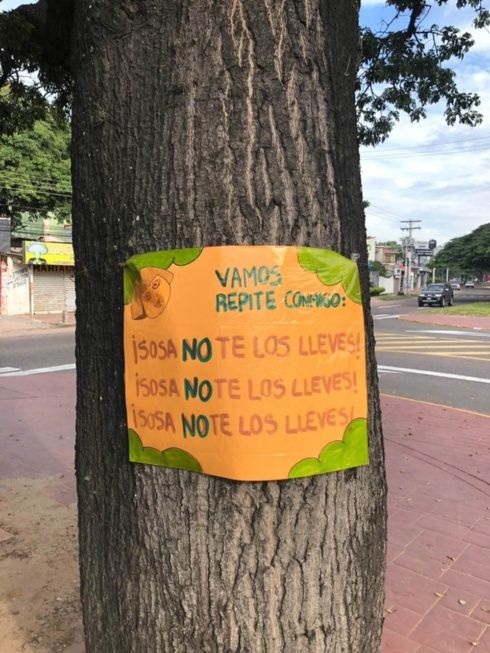 VAMOS
REPITE CONMIGO:
¡SOSA NO TE LOS LLEVES!
¡SOSA NO TE LOS LLEVES!
¡SOSA NO TE LOS LLEVES!
MARIAÑO